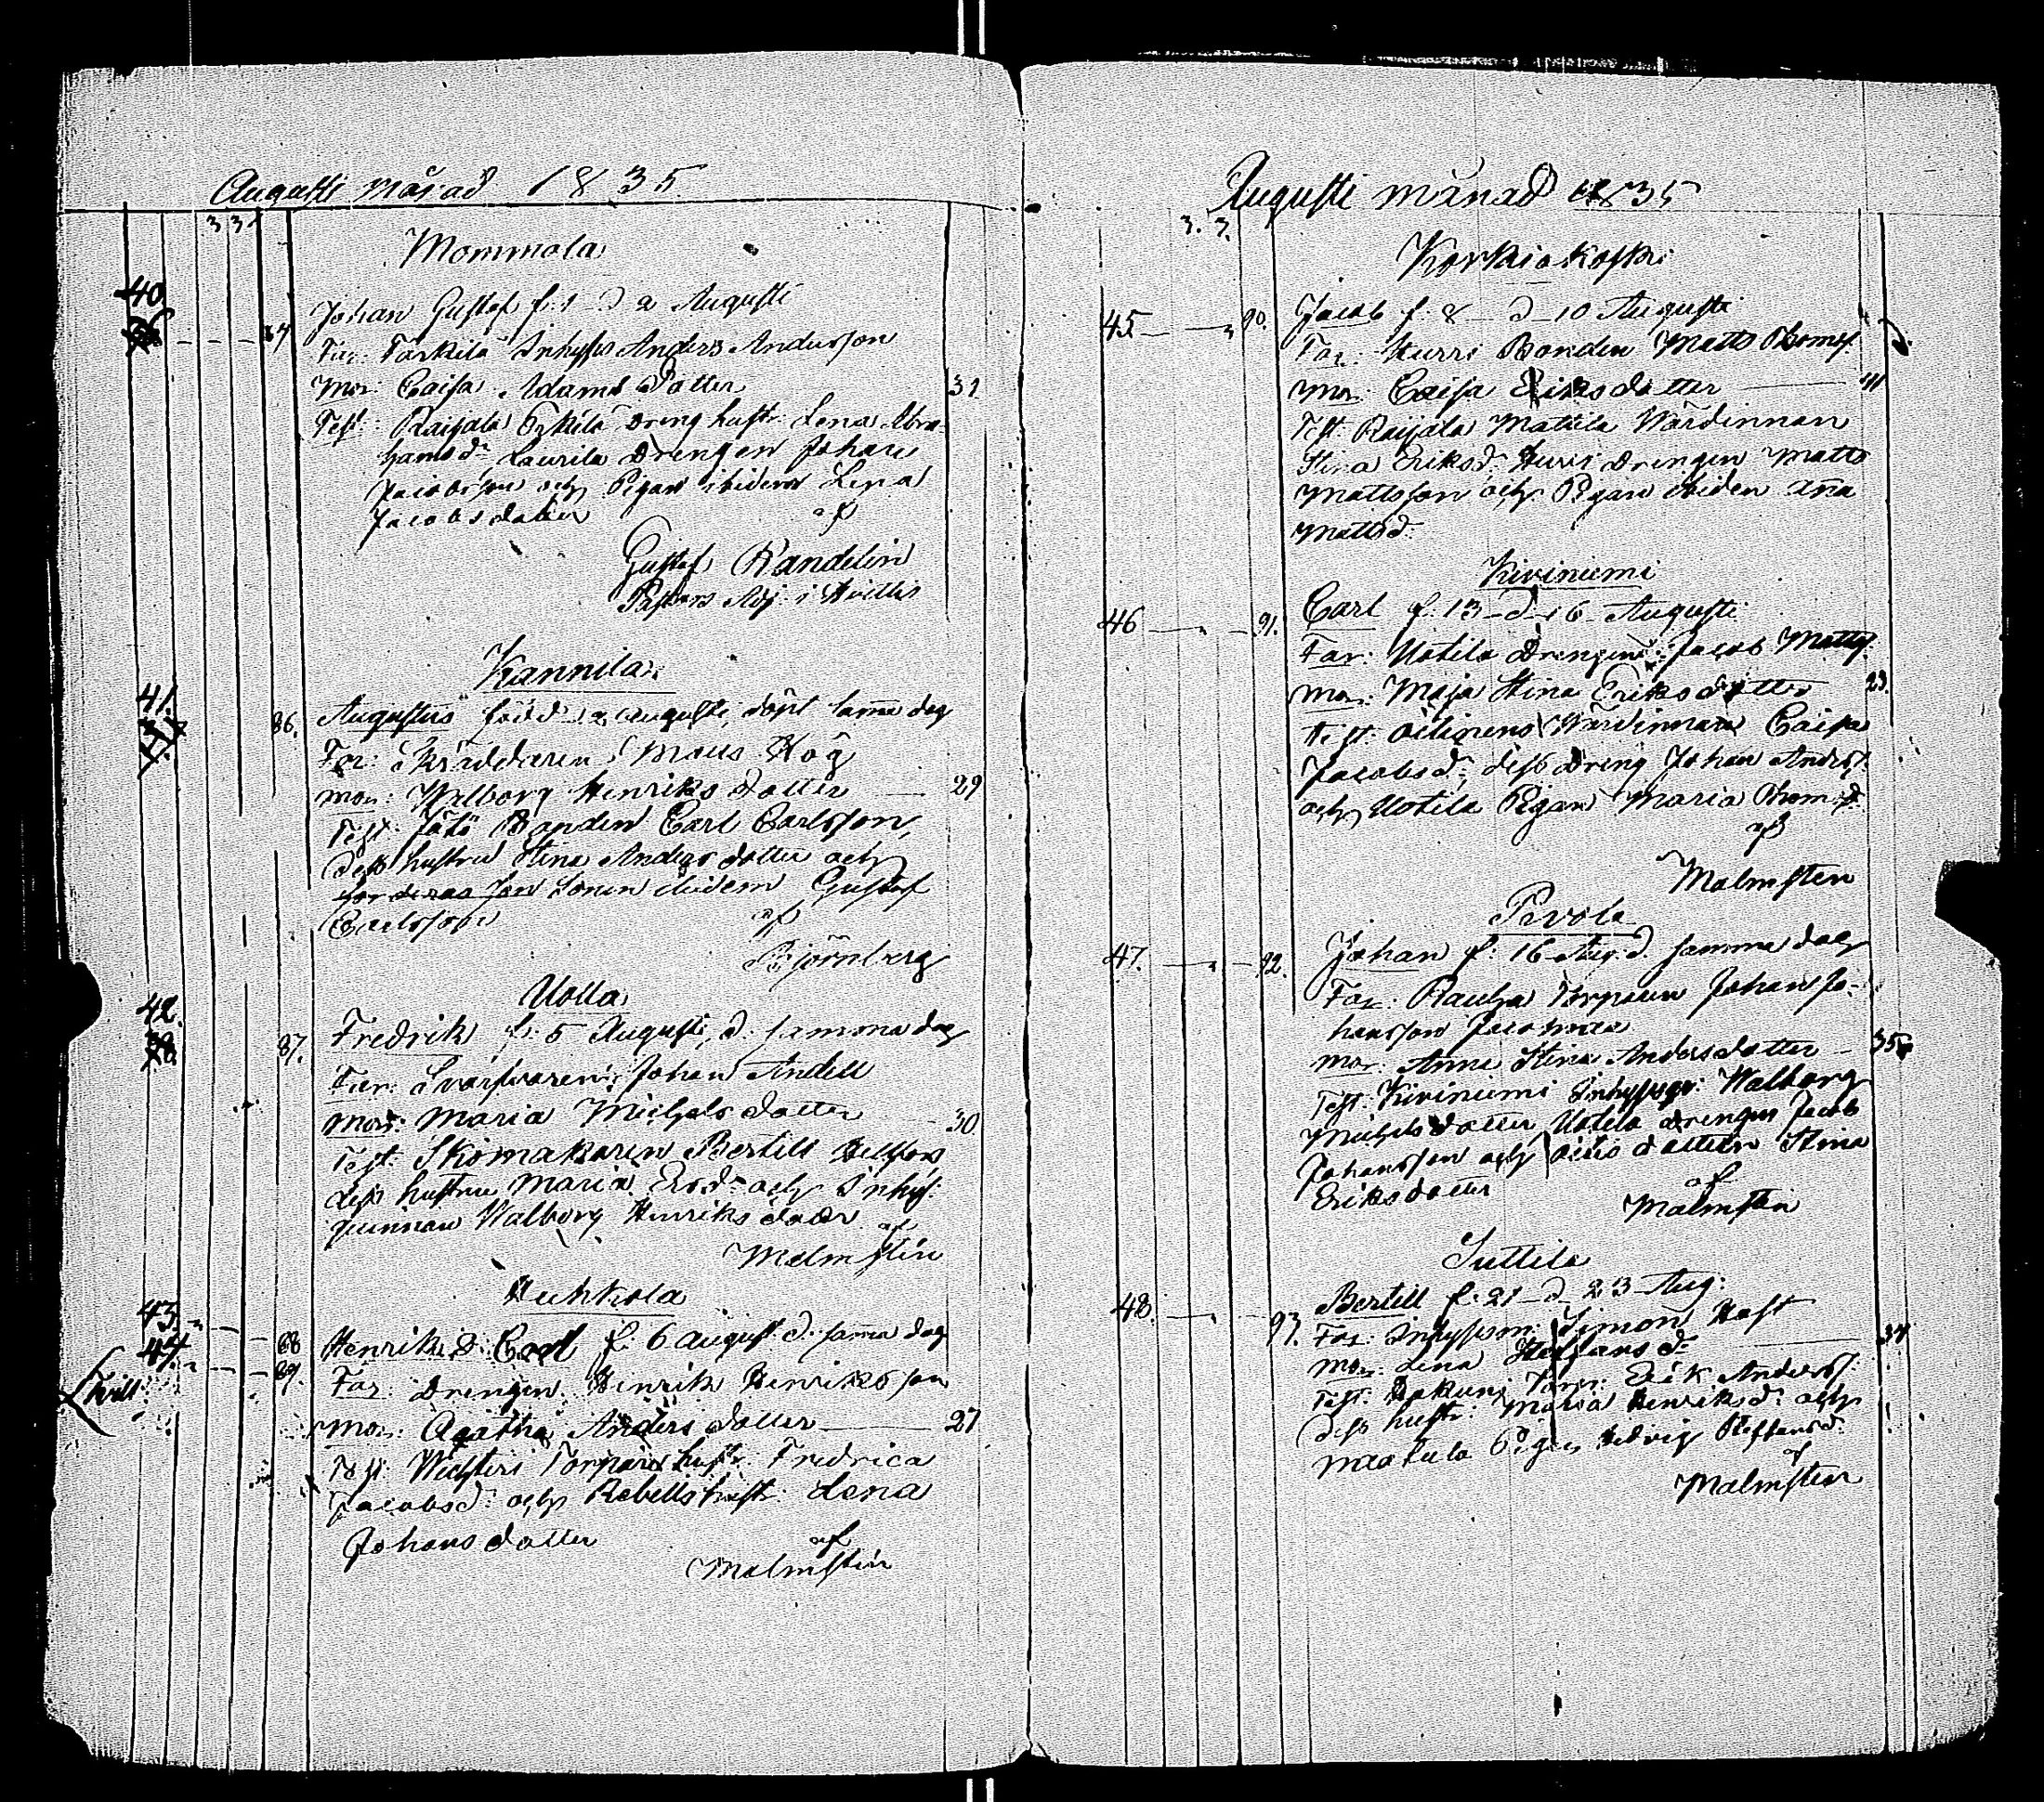 Augusti månad 1835.
3 3.
Mommola
40
Johan Gustaf f. 1 d 2 Augusti
Far: Inhyses Anders Andersson
Mor: Caisa Adams Dotter 31
Test: Raijala Erkilä Dreng hustr. Lena Abra-
hamsdr Laurila Drengen Johan
Jacobsson och Pigan ibidem Lena
Jacobsdotter af
Gustaf Randelin
Pastors Adj. i Hvittis
Kannila
41.
86. Augustus född 2 Augusti, döpt samma dag
Far: Skräddaren Maus Hög
Mor: Walborg Henriks Dotter 29
Test: Bonden Carl Carlsson,
dess hustru Stina Anders dotter och
Sonen ibidem Gustaf
Carlsson af
Björnberg
Uotta
42.
87. Fredrik f. 5 Augusti, d. samma dag
Far: Svarfvaren Johan Andell
Mor: Maria Michels dotter 30.
Test: Skomakaren Bertill
dess hustru Maria Ersdr och Inhys.
qvinnan Walborg Henriks dotter af
Malmstén
Huhkola
43.
44.
88 Henrik & Carl f. 6 August. d. samma dag
89. Far: Drengen Henrik Henriksson
Tvill:
Mor: Agatha Anders dotter 27
Test: Torpare hustr. Fredrica
Jacobsdr och Rebells hustr: Lena
Johans dotter af
Malmstén
Augusti månad 1835
3. 3.
Korkiakoski
45 90. Jacob f. 8 d 10 Augusti
Far: Kurri Bonden Matts Thomss.
Mor: Caisa Eriksdotter 41
Test. Raijala Mattila Wärdinnan
Stina Eriksdr. Kurri Drengen Matts
Mattsson och Pigan ibidem Anna
Mattsdr
Kiviniemi
46 91. Carl f. 13 d 16 Augusti
Far: Uotila Drengen Jacob Matts.
Mor: Maja Stina Eriksdotter 23.
Test. Wärdinnan Caisa
Jacobsdr, dess Dreng Johan Anderss.
och Uotila Pigan Maria Thomsd.
af
Malmsten
Pevola
47. 92. Johan f: 16 Aug. d. samma dag
Far: Rauha Torparen Johan Jo-
hansson
Mor: Anna Stina Andersdotter 35
Test: Kiviniemi Inhysesqv: Walborg
Michelsdotter, Uotila drengen Jacob
Johansson och dottern Stina
Eriksdotter af
Malmsten
Suttila
48. 93. Bertill f. 21 d 23 Aug.
Far: Inhysesm. Simon Hast
Mor: Lena Staffansdr 34
Test: Torp: Erik Anderss:
dess hustr: Maria Henriksd. och
Pigan Hedvig Steffansd.
af
Malmsten